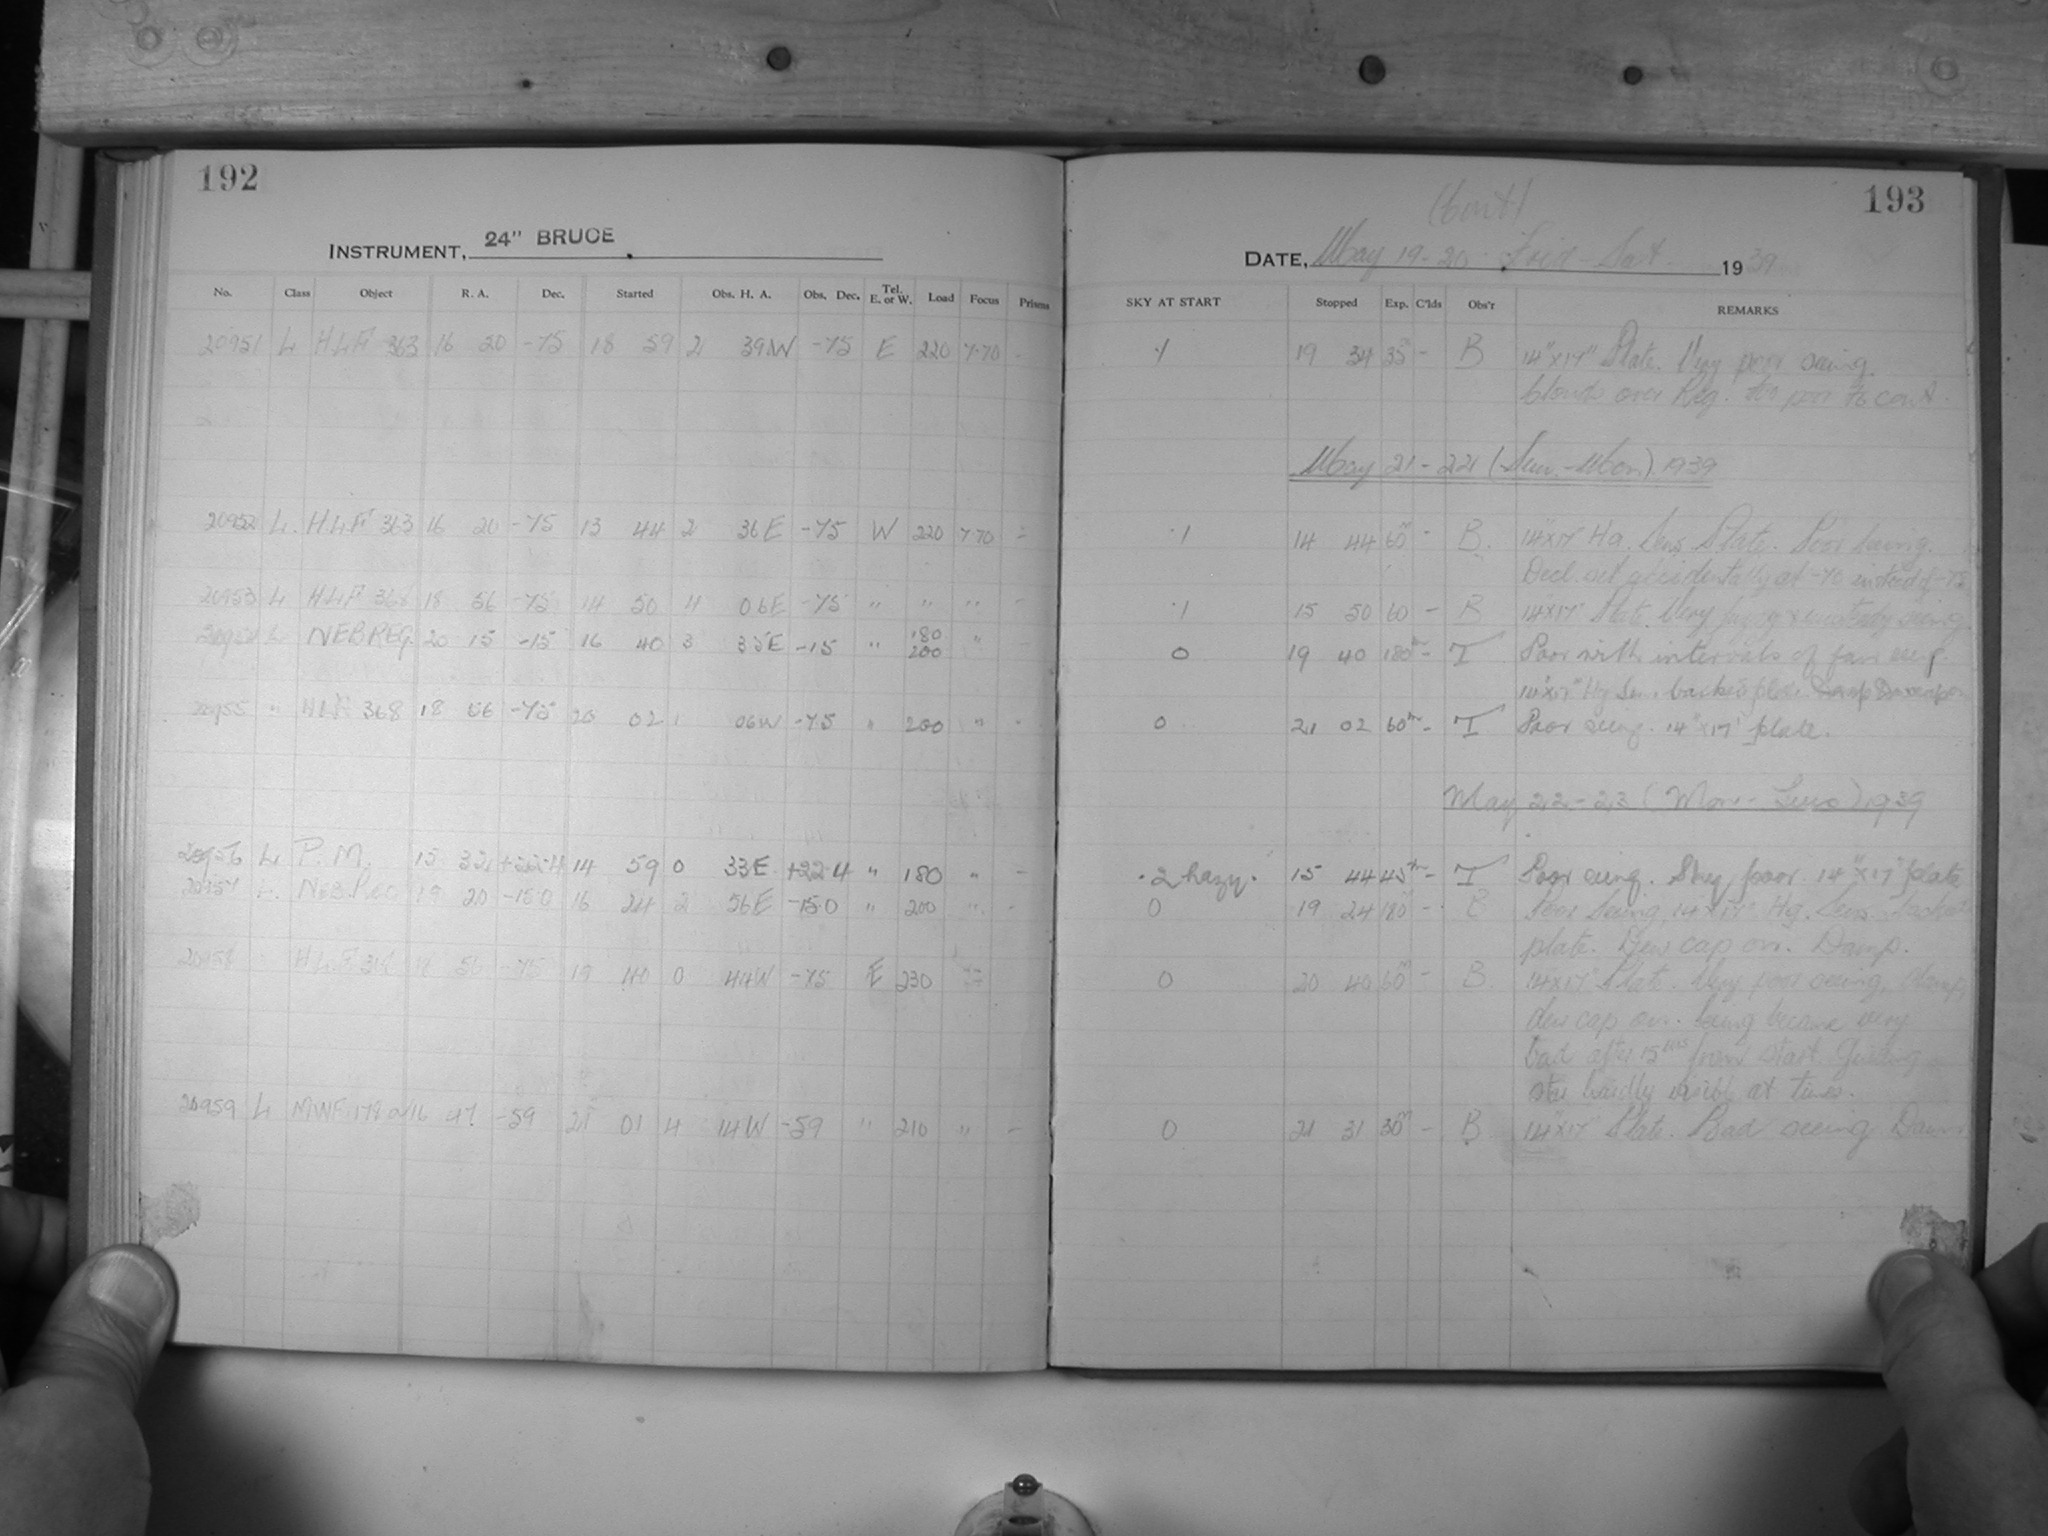 192
INSTRUMENT, 24" BRUCE
No. Class Object R. A. Dec. Started Obs. H. A. Obs. Dec. Tel. E. or W. Load Focus Prisms
20951 L HLF 363 16 20 -75 18 59 2 39W -75 E 220 7.70 -
20952 L. HLF 363 16 20 -75 13 44 2 36E -75 W 220 7.70 -
20953 L HLF 368 18 56 -75 14 50 4 06E -75 " " " -
20954 L NEB REG. 20 15 -15 16 40 3 35E -15 " 180 200 " -
20955 " HLF 368 18 56 -75 20 02 1 06W -75 " 200 " -
20956 L P.M. 15 32 +22.4 14 59 0 33E +22.4 " 180 " -
20957 L. NEB REG 19 20 -15.0 16 24 2 56E -15.0 " 200 " -
20958 HLF 56 -75 19 40 0 44W -75 E 230 "
20959 L MWF 16 47 -59 21 01 4 14W -59 " 210 " -
193
(Cont)
DATE, May 19-20 Frid-Sat 1939
SKY AT START Stopped Exp. C'lds Obs'r REMARKS
.1 19 34 35m - B 14"x17" Plate. Very poor seeing.
Clouds over Reg. too poor to cont.
May 21-22 (Sun.-Mon) 1939
.1 14 44 60m - B. 14"x17" Plate. Poor seeing.
Decl. set accidentally at -70 instead of -75
.1 15 50 60 - B 14"x17" Plate. Very seeing.
0 19 40 180m - T Poor with intervals of fair seeing.
14"x17" Hg Sen. backed plate
0 21 02 60m - T Poor seeing. 14"x17" plate.
May 22-23 (Mon-Tues) 1939
.2 hazy. 15 44 45m - T Poor seeing. Sky poor. 14"x17" plate
0 19 24 180m - B Poor Seeing 14"x17" Hg. Sens. backed
plate. Dew cap on. Damp.
0 20 40 60m - B. 14"x17" Plate. Very poor seeing, Damp,
dew cap on. Seeing became very
bad after 15 from start. Guiding
star hardly visible at times.
0 21 31 30m - B 14"x17" Plate. Bad seeing. Dawn